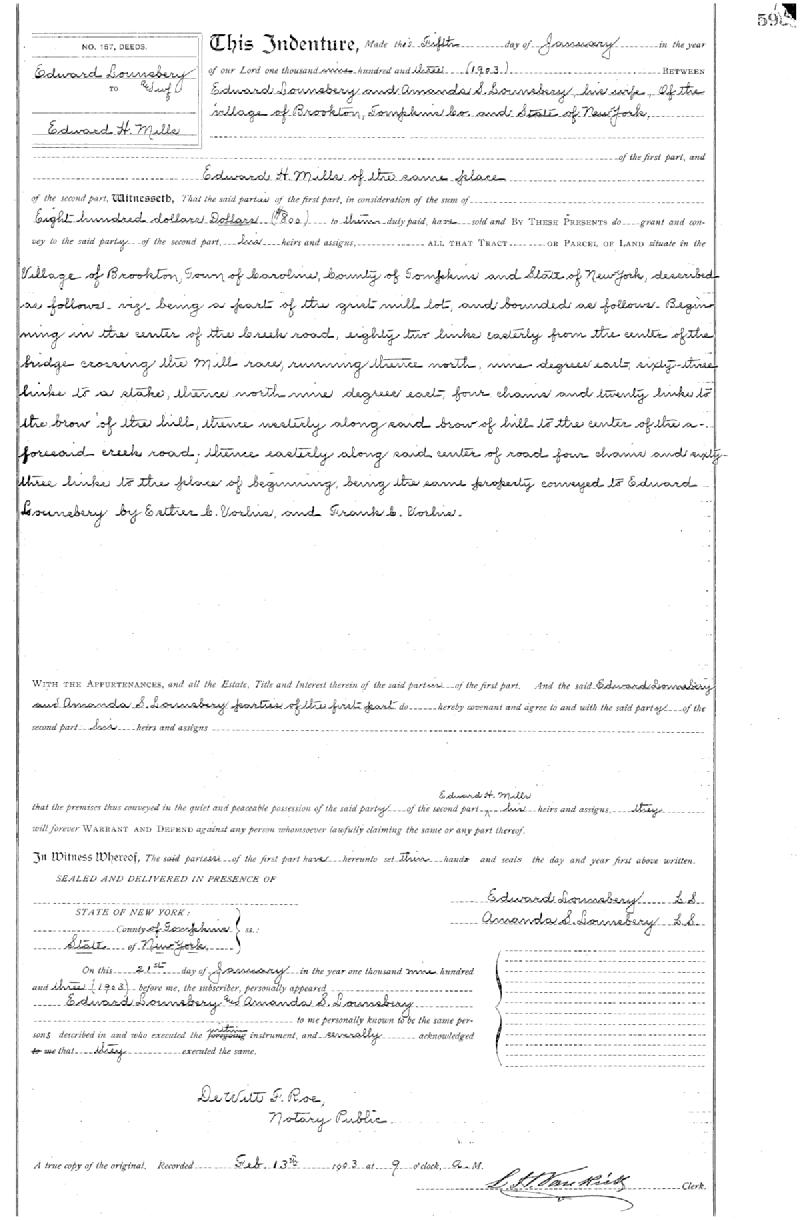 595
NO. 157, DEEDS.
Edward Lounsbery
& wf
TO
Edward H. Mills
This Indenture, Made this Fifth day of January in the year
of our Lord one thousand nine hundred and three (1903) BETWEEN
Edward Lounsbery and Amanda S. Lounsbery, his wife, Of the
village of Brookton, Tompkins Co. and State of New York,
of the first part, and
Edward H. Mills of the same place
of the second part, Witnesseth, That the said parties of the first part, in consideration of the sum of
Eight hundred dollars Dollars ($800) to them duly paid, have sold and BY THESE PRESENTS do grant and con-
vey to the said party of the second part, his heirs and assigns, ALL THAT TRACT OR PARCEL OF LAND situate in the
Village of Brookton, Town of Caroline, County of Tompkins and State of New York, described
as follows- viz- being a part of the grist mill lot, and bounded as follows- Begin-
ning in the center of the Creek road, eighty two links easterly from the center of the
bridge crossing the Mill race, running thence north, nine degrees east, sixty-three
links to a stake, thence north nine degrees east, four chains and twenty links to
the brow of the hill, thence westerly along said brow of hill to the center of the a-
foresaid creek road; thence easterly along said center of road four chains and sixty-
three links to the place of beginning, being the same property conveyed to Edward
Lounsbery by Esther C. Vorhis, and Frank C. Vorhis.
WITH THE APPURTENANCES, and all the Estate, Title and Interest therein of the said parties of the first part. And the said Edward Lounsbery
and Amanda S. Lounsbery parties of the first part do hereby covenant and agree to and with the said party of the
second part his heirs and assigns
Edward H. Mills
that the premises thus conveyed in the quiet and peaceable possession of the said party of the second part his heirs and assigns, they
will forever WARRANT AND DEFEND against any person whomsoever lawfully claiming the same or any part thereof.
In Witness Whereof, The said parties of the first part have hereunto set their hands and seals the day and year first above written.
SEALED AND DELIVERED IN PRESENCE OF
Edward Lounsbery L.S.
Amanda S. Lounsbery L.S.
STATE OF NEW YORK:
County of Tompkins ss.:
State of New York
On this 21st day of January in the year one thousand nine hundred
and three (1903) before me, the subscriber, personally appeared
Edward Lounsbery & Amanda S. Lounsbery
to me personally known to be the same per-
within
sons described in and who executed the foregoing instrument, and severally acknowledged
to me that they executed the same.
De Witt F. Roe,
Notary Public
A true copy of the original. Recorded Feb. 13th 1903 at 9 o'clock, A. M.
Clerk.